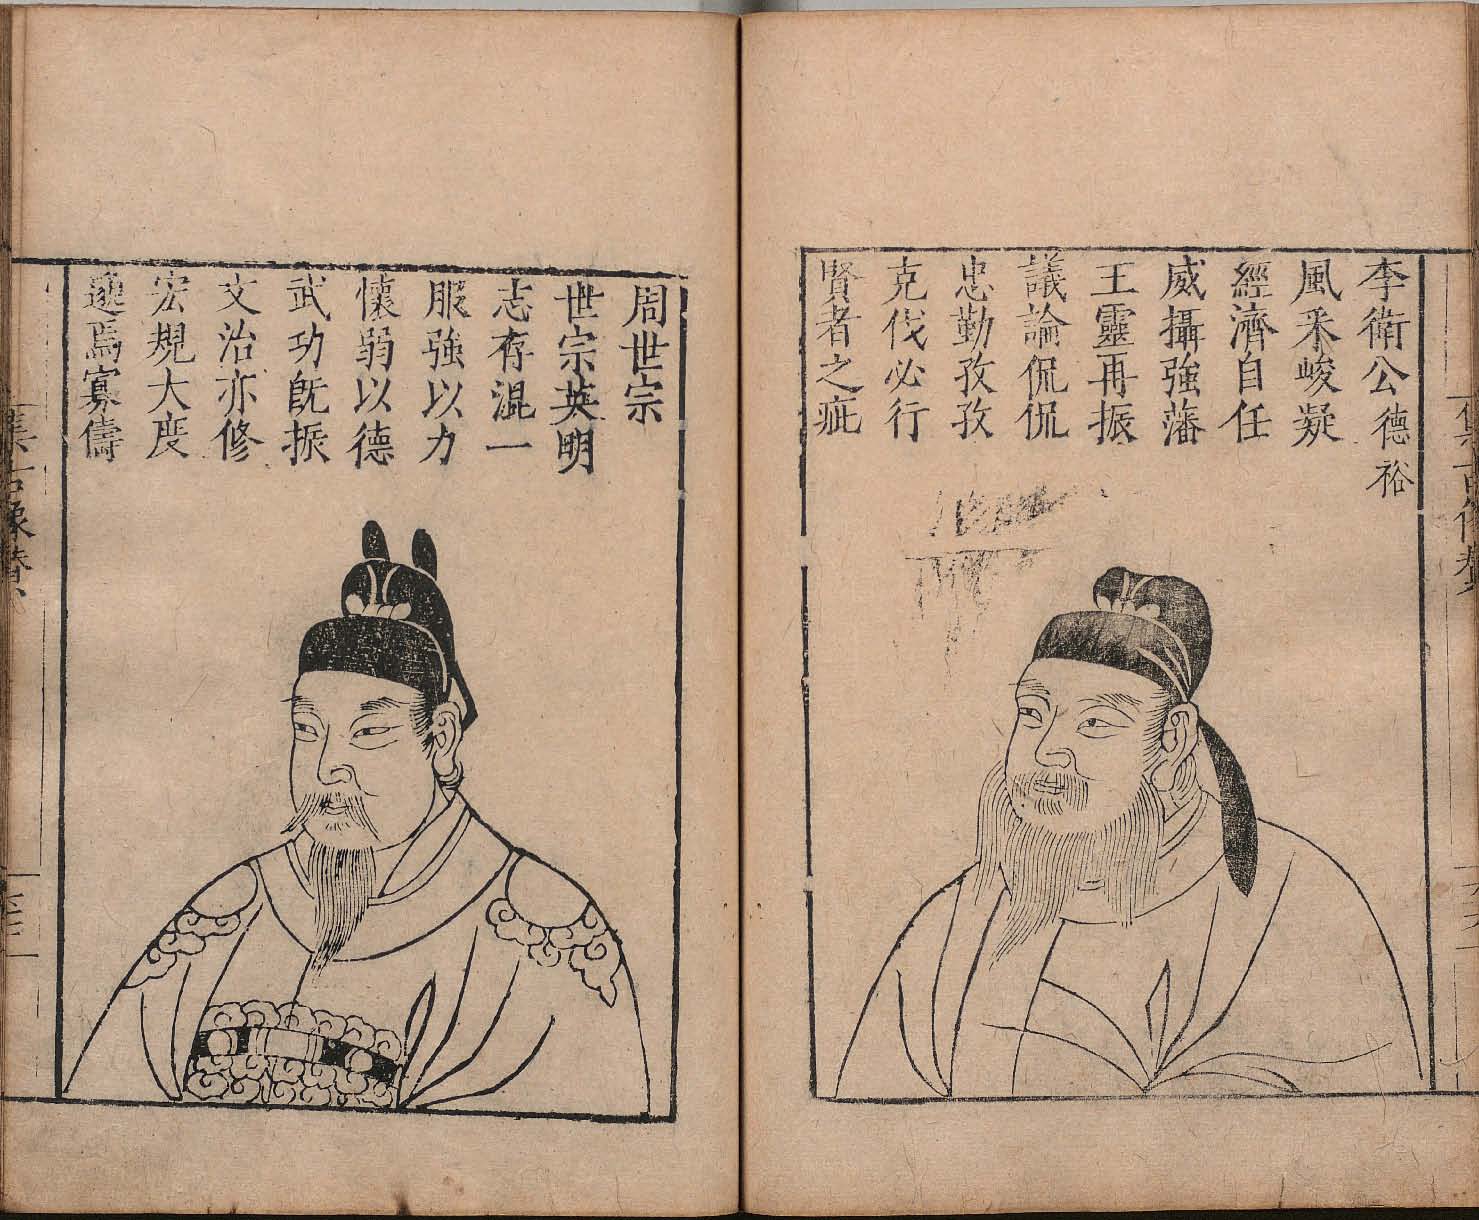 李衛公德裕
風采峻凝
經濟自任
威攝強藩
王靈再振
議論侃侃
忠勤孜孜
克伐必行
賢者之疵
周世宗
世宗英明
志存混一
服強以力
懷弱以德
武功既振
文治亦修
宏規大度
邈焉寡儔
集古像贊